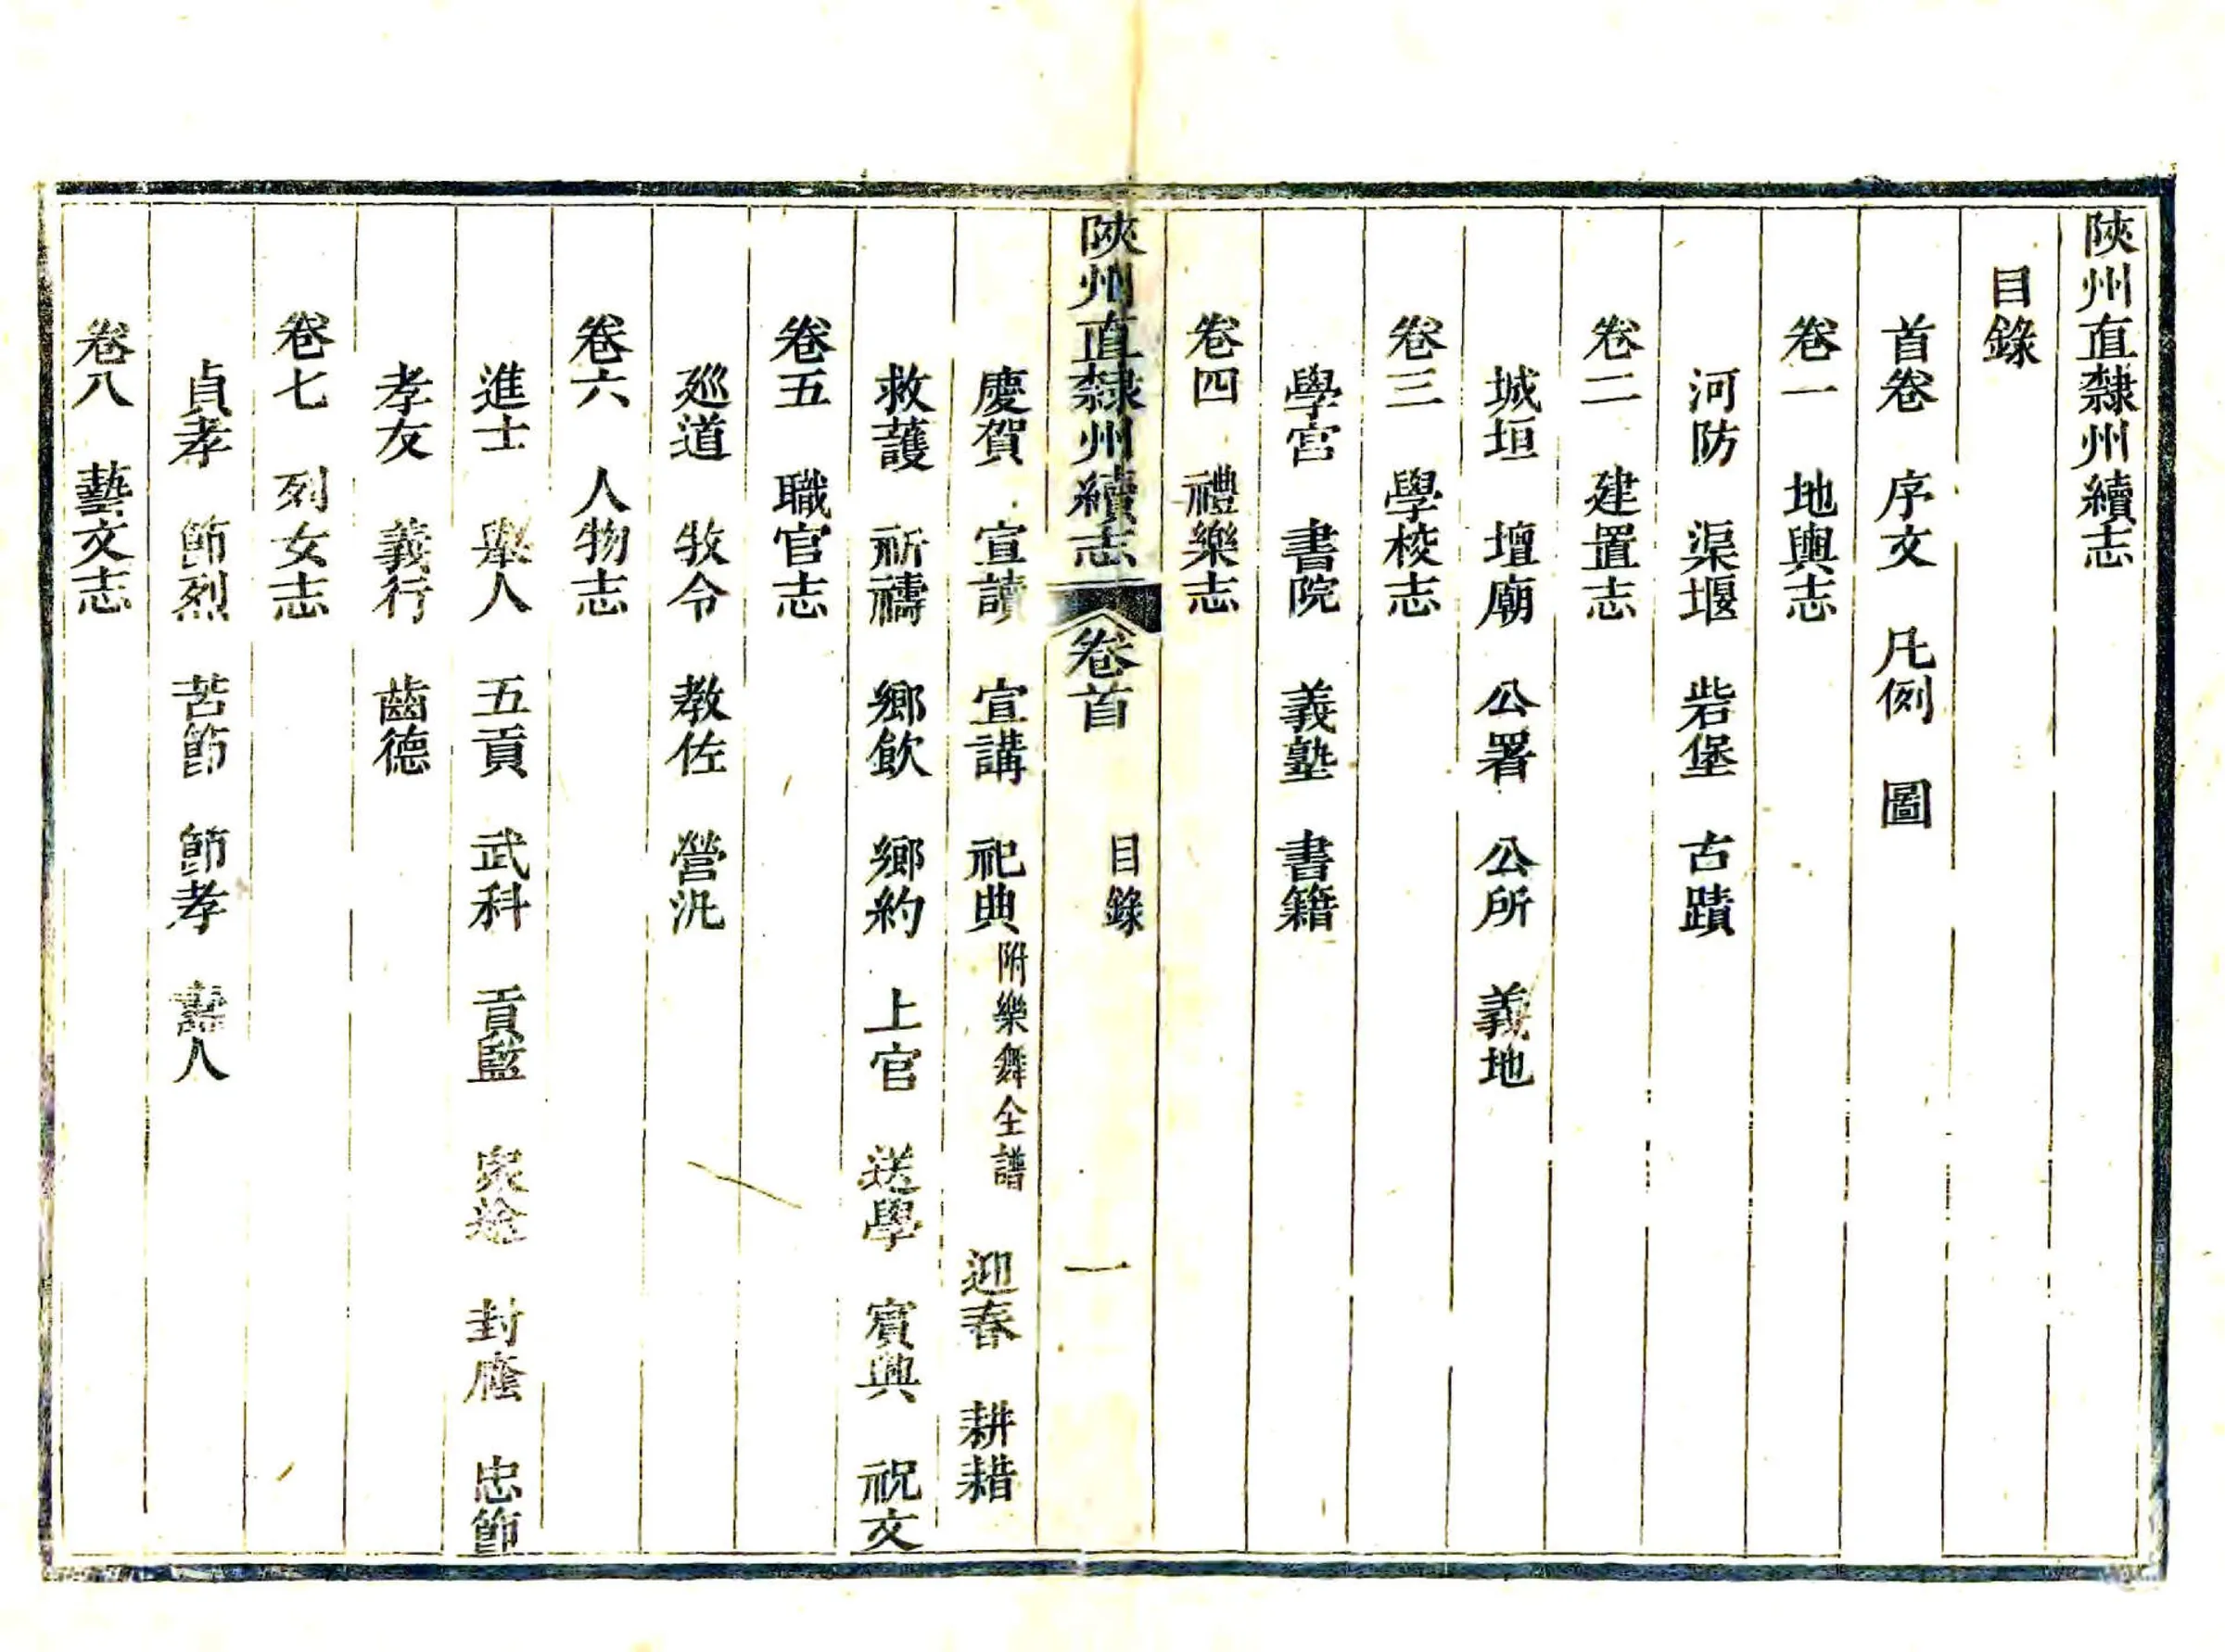 陝州直隸州續志
目錄
首卷 序文 凡例 圖
卷一 地輿志
河防 渠堰 砦堡 古蹟
卷二 建置志
城垣 壇廟 公署 公所 義地
卷三 學校志
學宮 書院 義塾 書籍
卷四 禮樂志
陝州直隸州續志 卷首 目錄 一
慶賀 宣讀 宣講 祀典 附樂舞全譜 迎春 耕耤
救護 祈禱 鄉飲 鄉約 上官 送學 賓興 祝文
卷五 職官志
巡道 牧令 教佐 營汛
卷六 人物志
進士 舉人 五貢 武科 貢監 衆途 封廕 忠節
孝友 義行 齒德
卷七 列女志
貞孝 節烈 苦節 節孝 壽人
卷八 藝文志